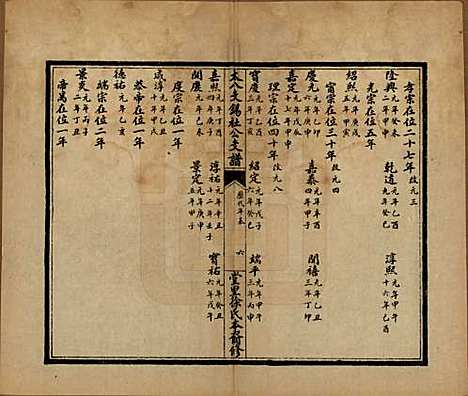 孝宗在位二十七年 改元三
隆興 元年癸未 二年甲申
乾道 元年乙酉 九年癸巳
淳熙 元年甲午 十六年己酉
光宗在位五年
紹熙 元年庚戌 五年甲寅
甯宗在位三十年 改元四
慶元 元年乙卯 六年庚申
嘉泰 元年辛酉 四年甲子
開禧 元年乙丑 三年丁卯
嘉定 元年戊辰 十七年甲申
理宗在位四十年 改元八
寶慶 元年乙酉 三年丁亥
紹定 元年戊子 六年癸巳
端平 元年甲午 三年丙申
嘉熙 元年丁酉 四年庚子
淳祐 元年辛丑 十二年壬子
寶祐 元年癸丑 六年戊午
開慶 元年己未
景定 元年庚申 五年甲子
度宗在位十年
咸淳 元年乙丑 十年甲戌
恭帝在位一年
德祐 元年乙亥
端宗在位二年
景炎 元年丙子 二年丁丑
帝昺在位一年
支譜
歷代年表
六
堂里徐氏